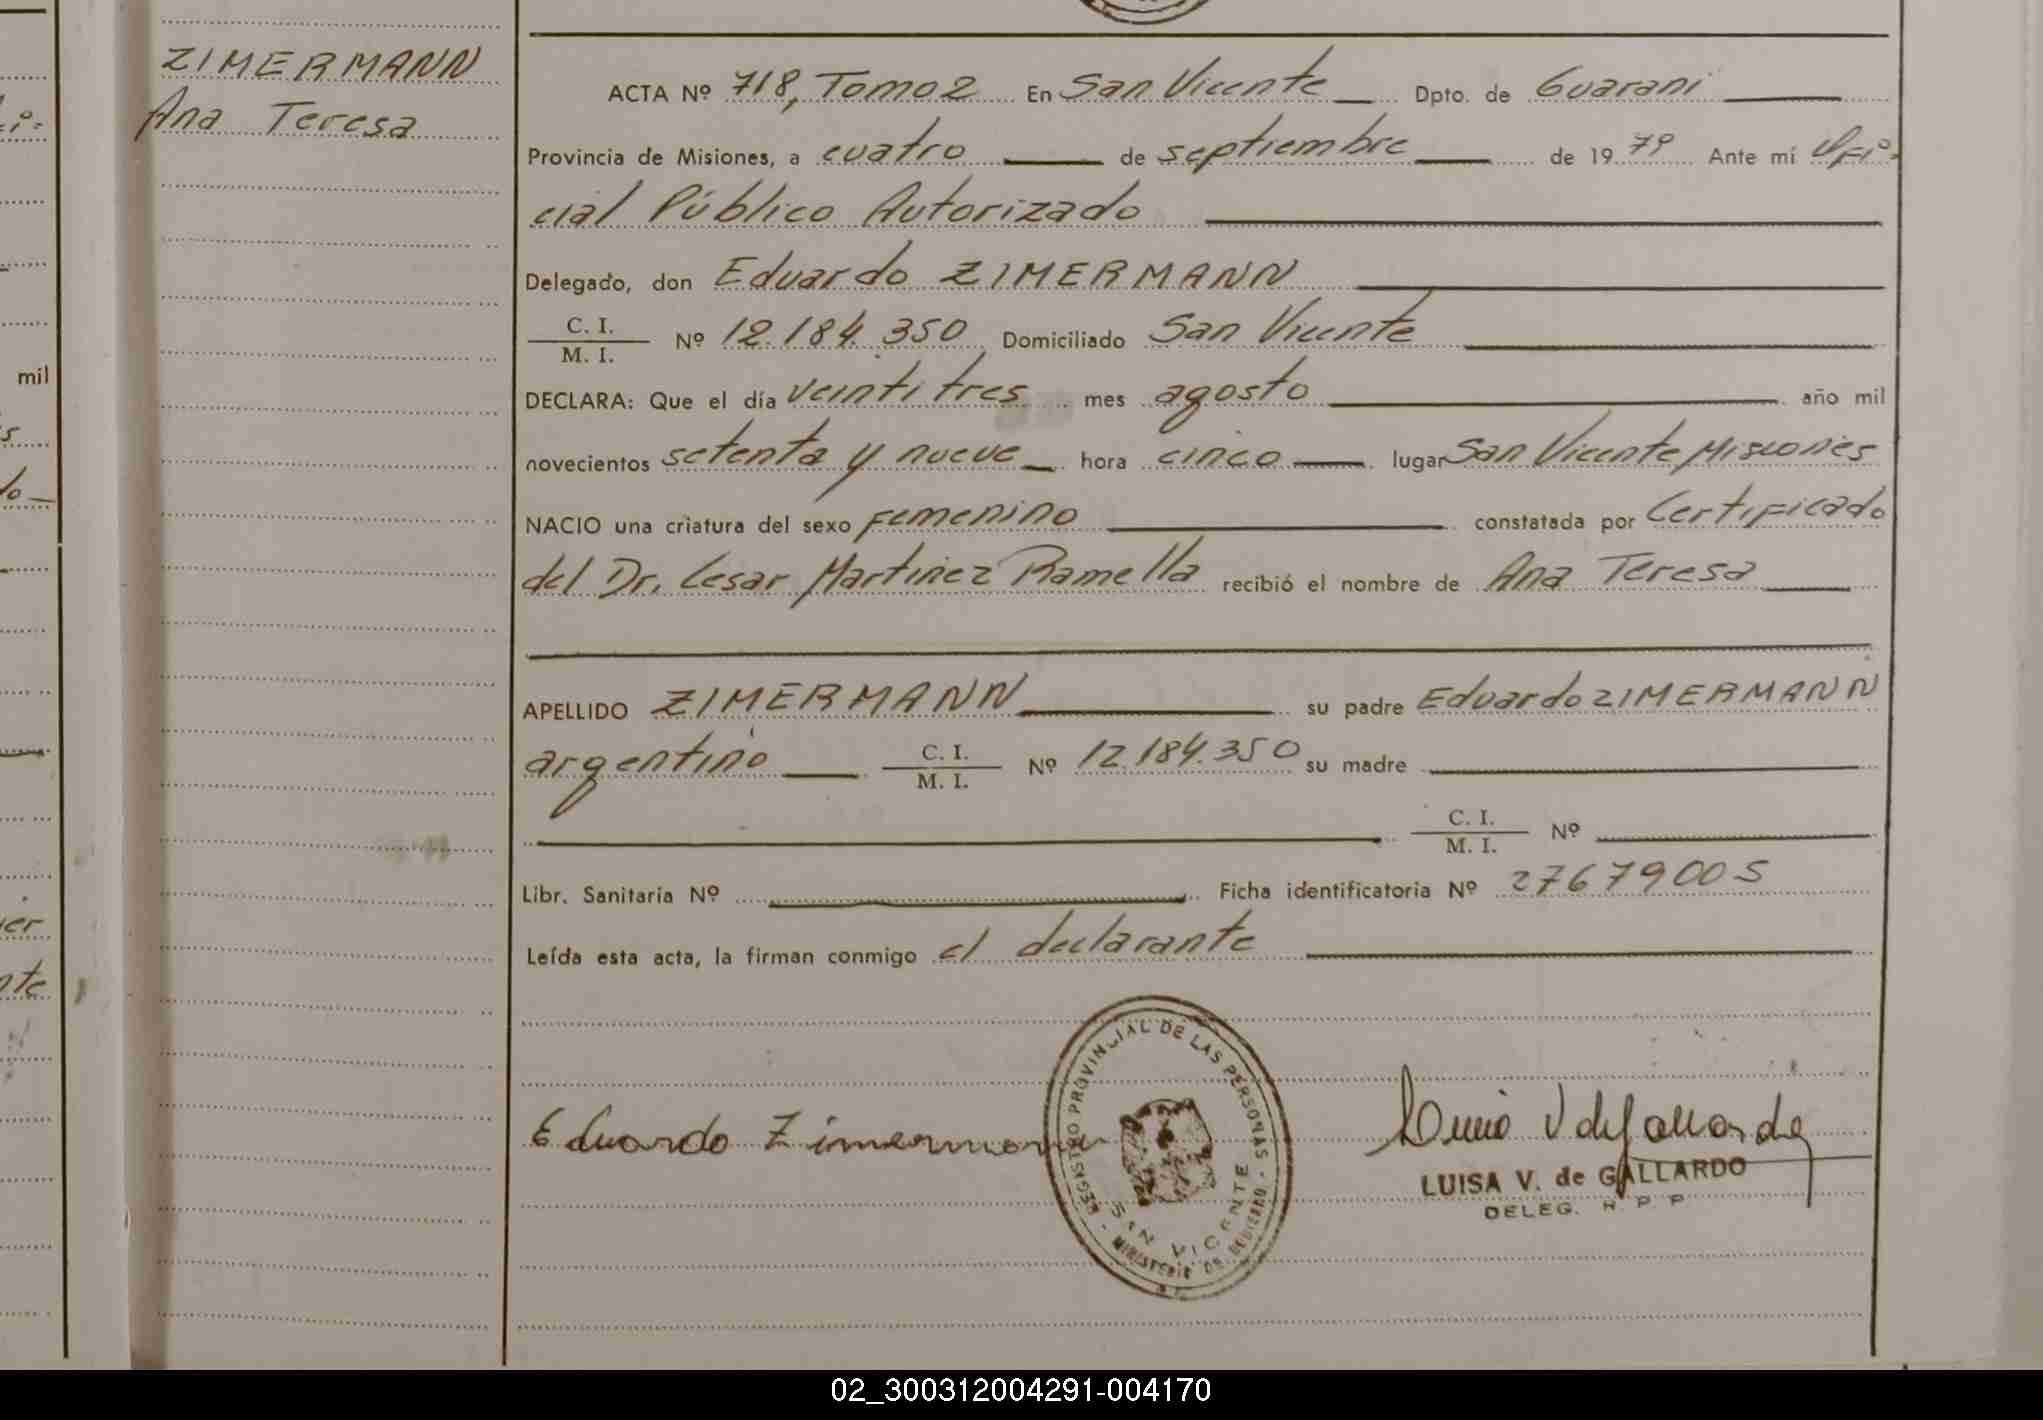 ZIMERMANN
Ana Teresa
ACTA Nº 718, Tomo 2 En San Vicente Dpto. de Guarani
Provincia de Misiones, a cuatro de septiembre de 1979 Ante mí Ofi-
cial Público Autorizado
Delegado, don Eduardo ZIMERMANN
C. I.
M. I. Nº 12.184.350 Domiciliado San Vicente
DECLARA: Que el día veintitres mes agosto año mil
novecientos setenta y nueve hora cinco lugar San Vicente Misiones
NACIO una criatura del sexo Femenino constatada por Certificado
del Dr. Cesar Martinez Ramella recibió el nombre de Ana Teresa
APELLIDO ZIMERMANN su padre Eduardo ZIMERMANN
argentino C. I.
M. I. Nº 12.184.350 su madre
C. I.
M. I. Nº
Libr. Sanitaria Nº Ficha identificatoria Nº 27679005
Leída esta acta, la firman conmigo el declarante
REGISTRO PROVINCIAL DE LAS PERSONAS
SAN VICENTE
MINISTERIO DE GOBIERNO
Eduardo Zimermann
LUISA V. de GALLARDO
DELEG. R. P. P
mil
02_300312004291-004170